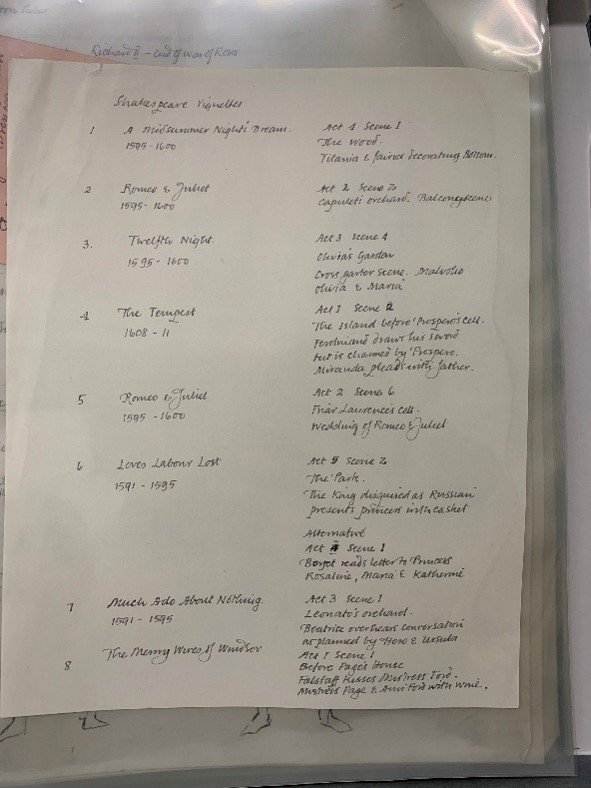 Richard II - end of War of Roses
Shakespeare Vignettes
1 A Midsummer Night's Dream. Act 4 Scene 1
1595-1600 The Wood.
Titania & fairies decorating Bottom.
2 Romeo & Juliet Act 2 Scene 2
1595-1600 Capulets orchard. Balcony scene
3. Twelfth Night. Act 3 Scene 4
1595-1600 Olivia's Garden
Cross garter scene. Malvolio
Olivia & Maria
4 The Tempest Act 1 Scene 2
1608-11 The Island before Prospero's cell.
Ferdinand draws his sword
but is charmed by Prospero.
Miranda pleads with father.
5 Romeo & Juliet Act 2 Scene 6
1595-1600 Friar Laurence's cell.
Wedding of Romeo & Juliet
6 Loves Labour Lost Act 5 Scene 2
1591-1595 The Park.
The King disguised as Russian
presents princess with casket
Alternative
Act 4 Scene 1
Boyet reads letter to Princess
Rosaline, Maria & Katherine
7 Much Ado About Nothing. Act 3 Scene 1
1591-1595 Leonato's orchard.
Beatrice overhears conversation
as planned by Hero & Ursula
8 The Merry Wives of Windsor Act 1 Scene 1
Before Page's House
Falstaff kisses Mistress Ford.
Mistress Page & Ann Ford with wine.